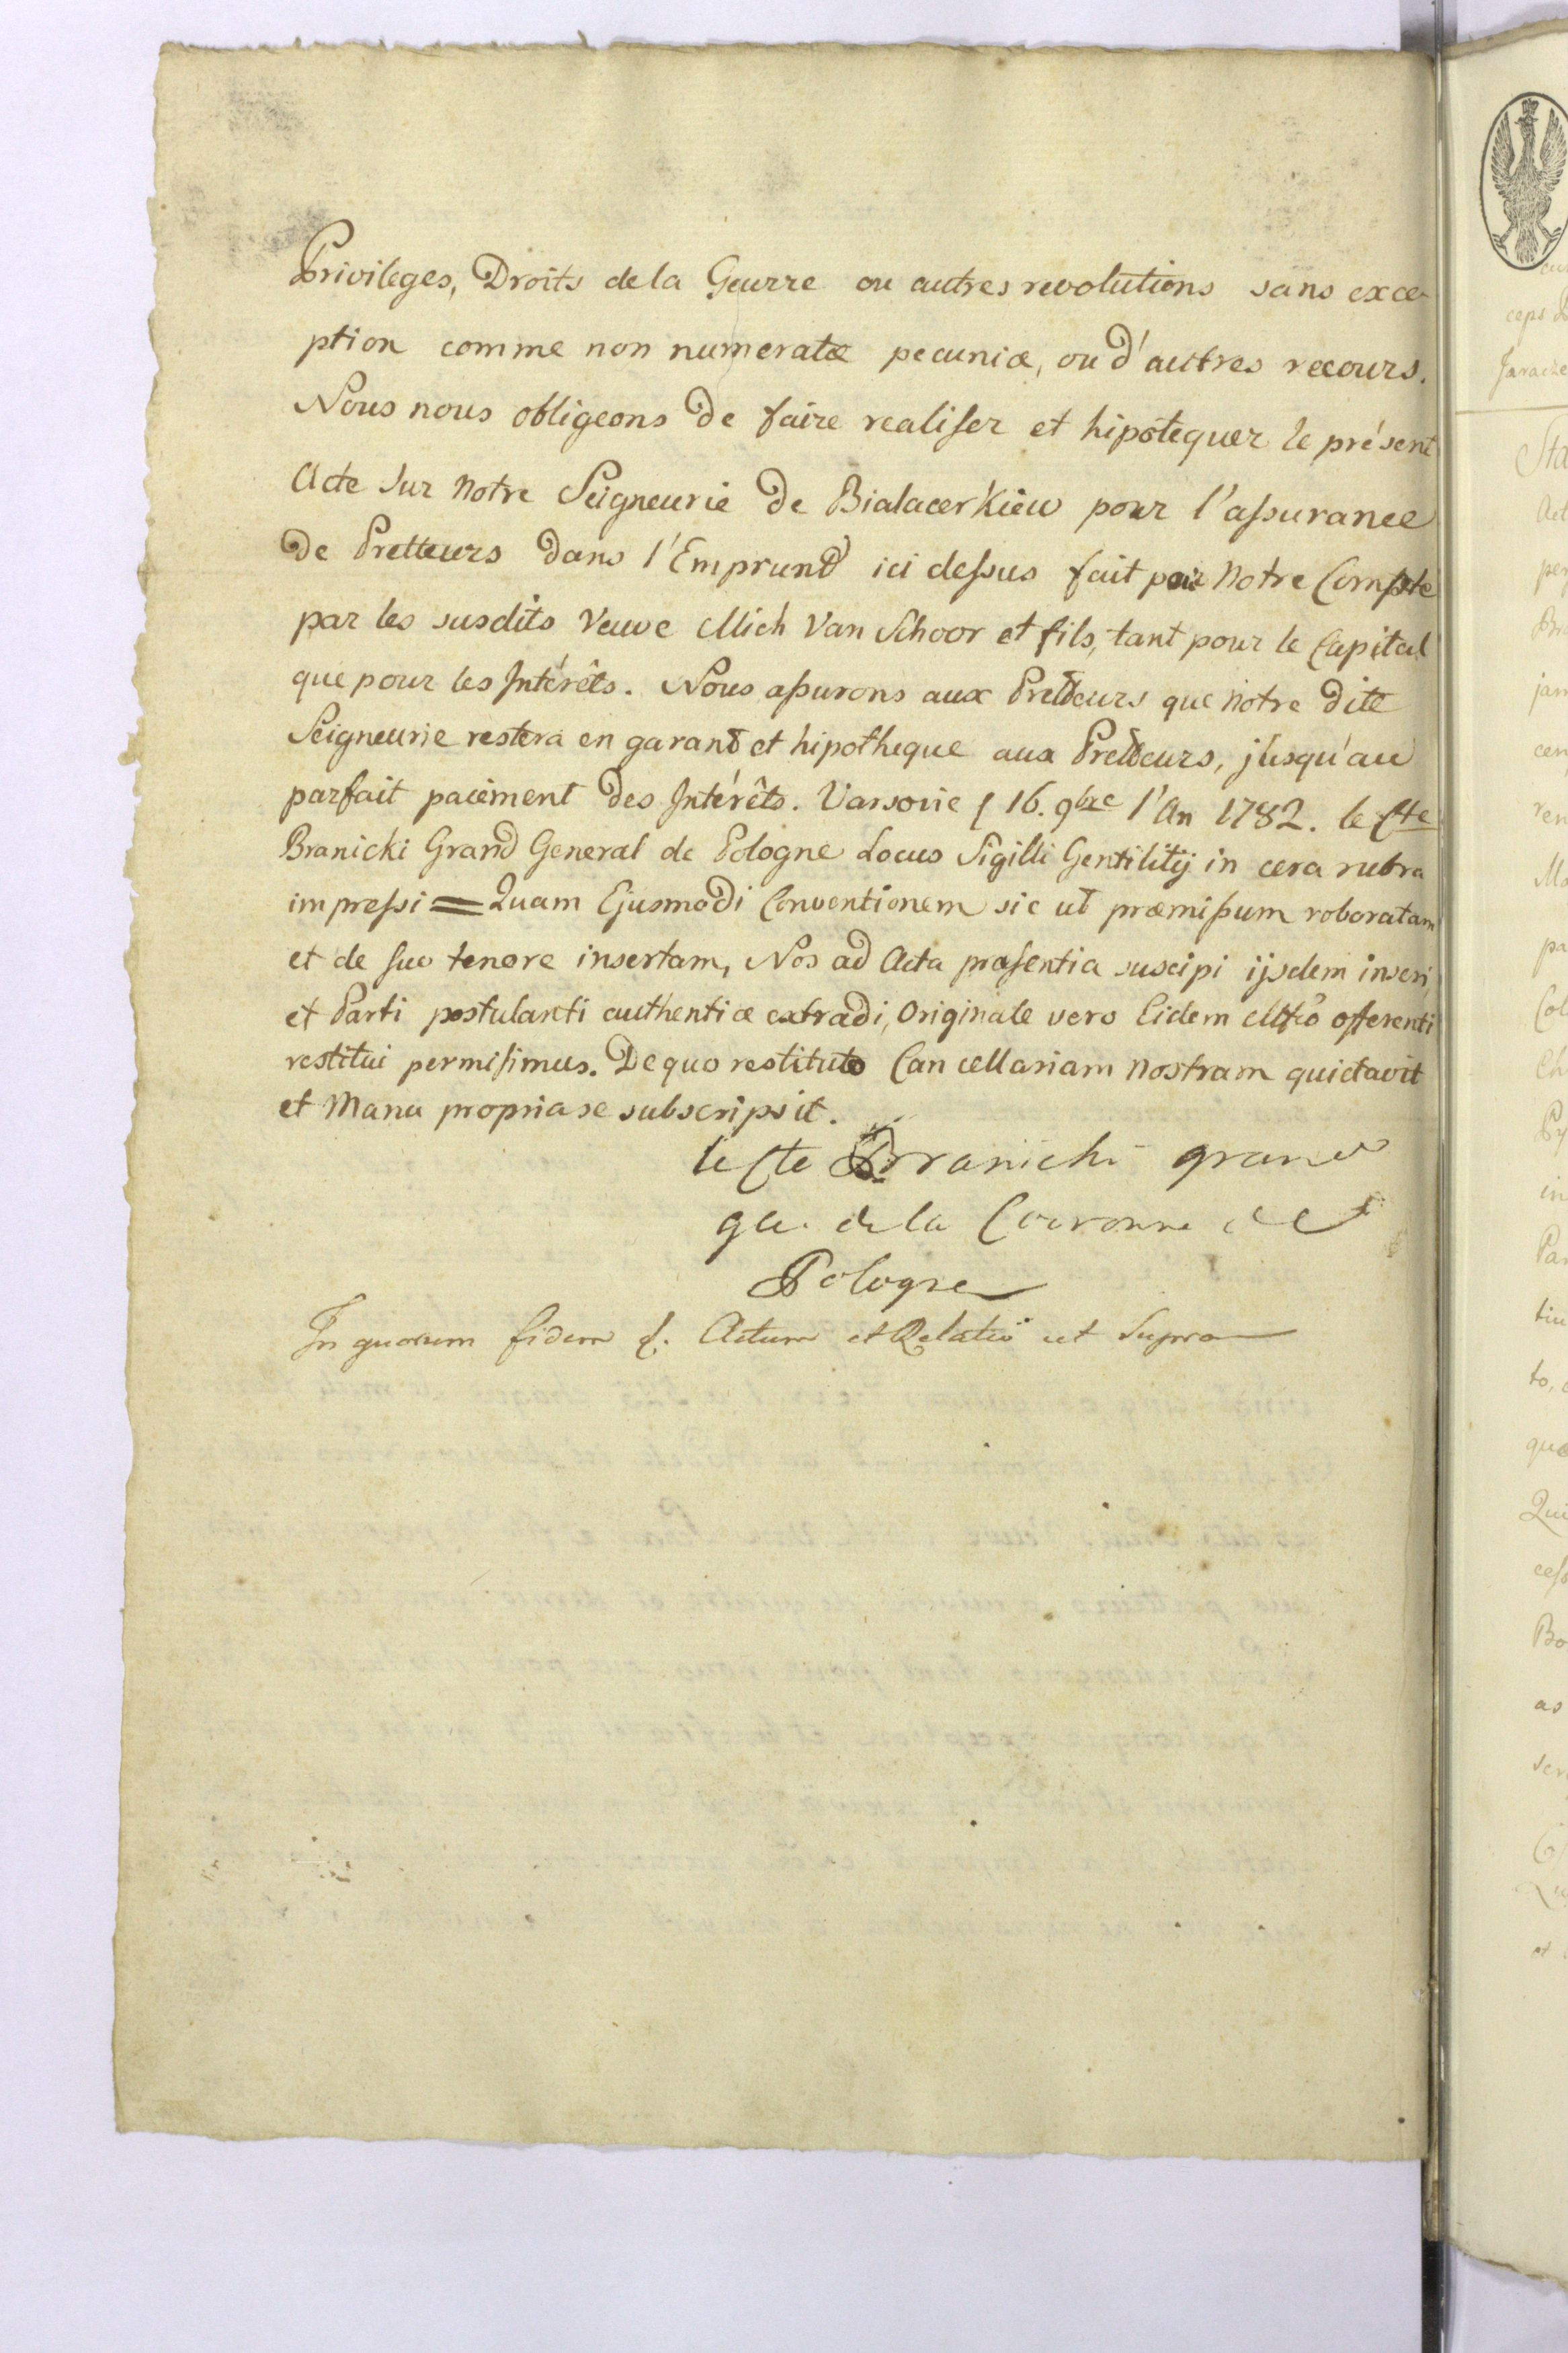 Privileges, Droits de la Geurre ou autres revolutions sans exce-
ption comme non numeratæ pecuniæ, ou d'autres recours.
Nous nous obligeons de faire realiser et hipotequer le présent
Acte Sur Notre Seigneurie de Bialacerkiew pour l'assurance
de Pretteurs dans l'Emprund ici dessus fait pour Notre Compte
par les susdits Veuve Mich Van Schoor et fils, tant pour le Capital
que pour les Intérêts. Nous assurons aux Pretteurs que Notre dite
Seigneurie restera en garant et hipotheque aux Pretteurs, jusqu'au
parfait paiement des Intérêts. Varsovie 16. 9bre l'An 1782. le Cte
Branicki Grand General de Pologne Locus Sigilli Gentilitij in cera rubra
impressi = Quam Ejusmodi Conventionem sic ut præmissum roboratam
et de suo tenore insertam, Nos ad Acta præsentia suscipi ijsdem inseri,
et Parti postulanti authentice extradi, Originale vero Eidem offerenti
restitui permisimus. De quo restituto Cancellariam Nostram quietavit
et Manu propria se subscripsit.
le Cte Branicki grand
de la Couronne de
Pologne
In quorum fidem Actum et Relatio ut Supra
ceps
Sta
Act
per
Bra
jam
cen
ren
pa
Col
in
Par
to,
quæ
Qui
Bo
as
ser
et